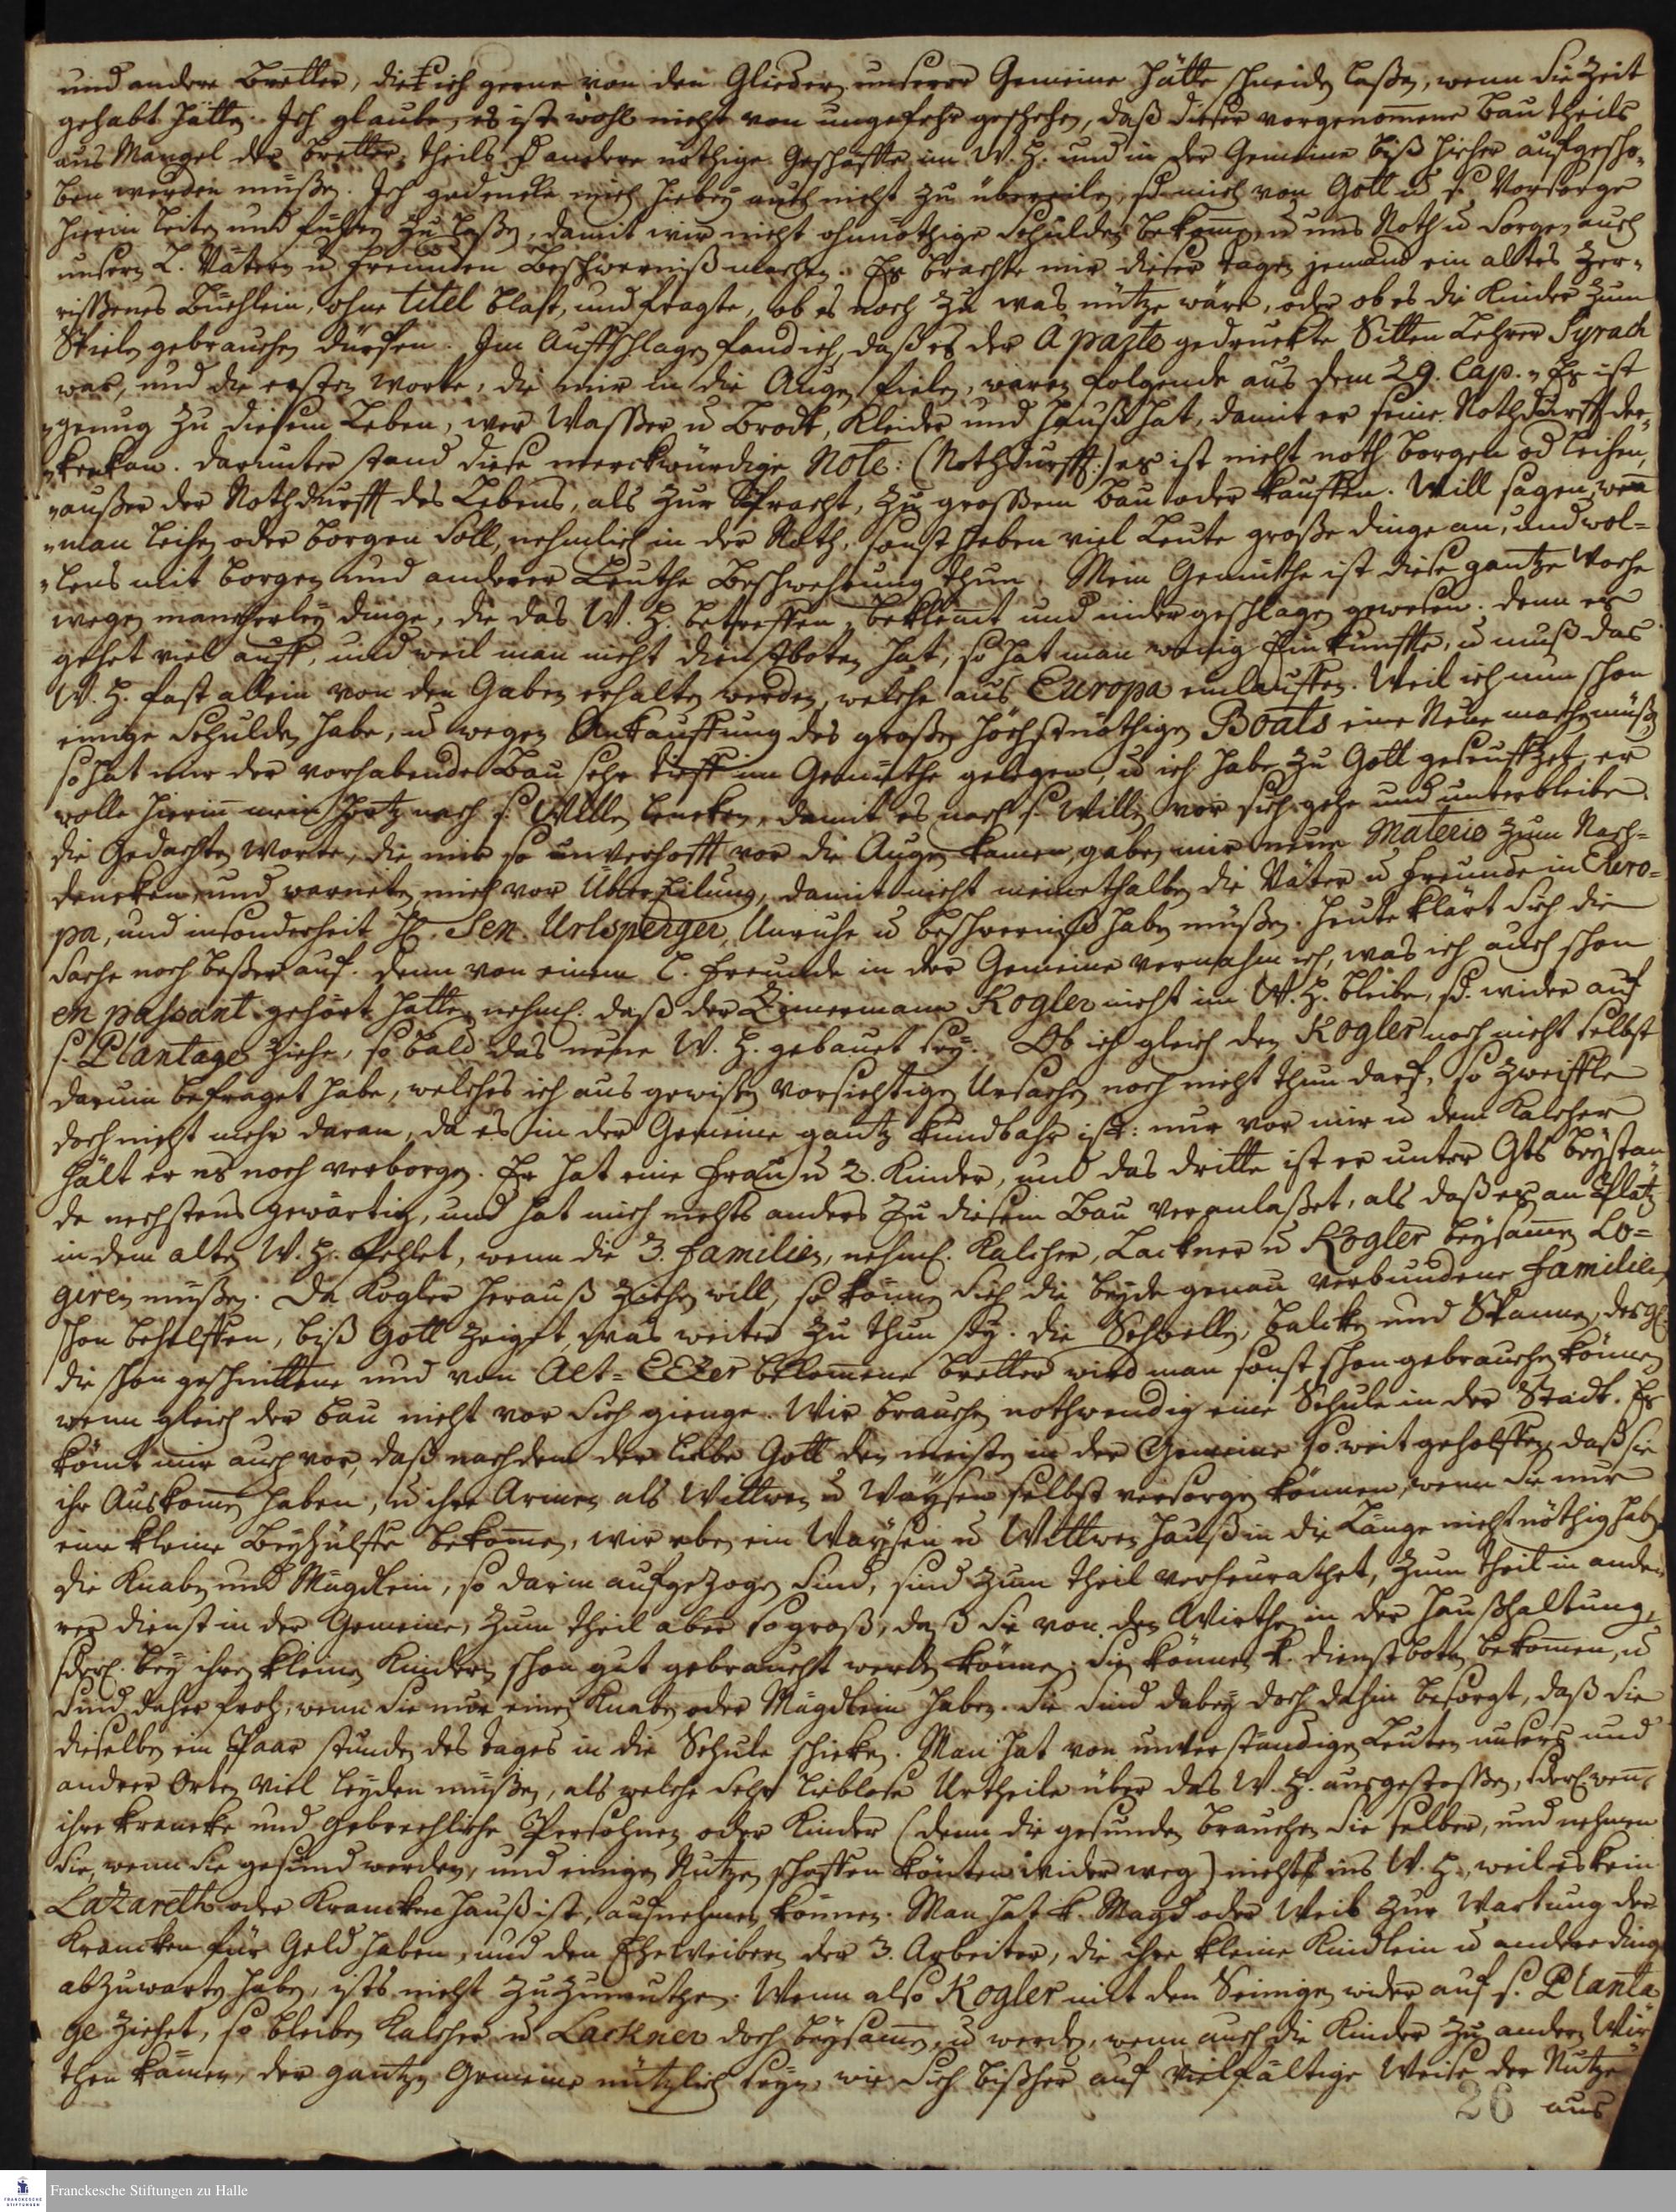 und andere Bretter, die ich gerne von den Gliedern unserer Gemeine hätte schneiden laßen, wenn sie Zeit
gehabt hätten. Ich glaube, es ist wohl nicht von ungefehr geschehen, daß dieser vorgenom̃ene Bau theils
aus Mangel der Bretter, theils andere nöthige Geschäffte im W. H. und in der Gemeine biß hieher aufgescho-
ben werden müßen. Ich gedencke mich hiebey auch nicht zu übereilen, sd mich von Gott u s. Vorsorge
hierin leiten und führen zu laßen, damit wir nicht ohnnöthige Schulden bekom̃en, u uns Noth u Sorgen auch
unsern L. Vätern u Freunden Beschwerniß machen. Es brachte mir dieser Tagen jemand ein altes zer-
rißenes Büchlein, ohne Titel Blatt, und fragte, ob es noch zu was nütze wäre, oder ob es die Kinder zum
Spielen gebrauchen dürfen. Im Auffschlagen fand ich, daß es der à parte gedruckte Sitten Lehrer Syrach
war, und die ersten Worte, die mir in die Augen fielen, waren folgende aus dem 29. Cap. „Es ist
„genug zu diesem Leben, wer Waßer u Brodt, Kleider und Hauß hat, damit er seine Nothdurfft de-
„cken kan. Darunter stand diese merckwürdige Note: (Nothdurfft:) es ist nicht noth borgen od leihen,
„außer der Nothdurfft des Lebens, als zur Pracht, zu großem Bau oder kauffen. Will sagen, weñ
„man leihen oder borgen soll, nehmlich in der Noth, sonst heben viel Leute große Dinge an, und wol-
„lens mit borgen und anderer Leuthe Beschwehrung thun. Mein Gemüthe ist diese gantze Woche
wegen mancherley Dinge, die das W. H. betreffen, beklem̃t und nidergeschlagen gewesen. Denn es
gehet viel auff, und weil man nicht Dienstboten hat, so hat man wenig Einkünffte, u muß das
W. H. fast allein von den Gaben erhalten werden, welche aus Europa einlauffen. Weil ich nun schon
einige Schulden habe, u wegen Ankauffung des großen höchstnöthigen Boats eine Neue machen muß,
so hat mir der vorhabende Bau sehr tieff im Gemüthe gelegen, u ich habe zu Gott geseuffzet, er
wolle hierin̄ mein Hertz nach s. Willen lencken, damit es nach s. Willen vor sich gehe und unterbleibe.
Die gedachten Worte, die mir so unverhofft vor die Augen kamen, gaben mir neue Materie zum Nach-
dencken, und warneten mich vor Übereilung, damit nicht meinethalben die Väter u Freunde in Euro-
pa, und insonderheit H. Sen. Urlsperger, Unruhe u Beschwerniß haben müßen. Heute klärt sich die
Sache noch beßer auf. Denn von einem L. Freunde in der Gemeine vernahm ich, was ich auch schon
en passant gehört hatte, nehml. daß der Zimmermann Kogler nicht im W. H. bleibe, sd. wider auf
s. Plantage ziehe, so bald das neue W. H. gebauet sey. Ob ich gleich den Kogler noch nicht selbst
darum befraget habe, welches ich aus gewißen vorsichtigen Ursachen noch nicht thun darf, so zweiffle
doch nicht mehr daran, da es in der Gemeine gantz kundbahr ist: nur vor mir u dem Kalcher
hält er es noch verborgen. Er hat eine Frau u 2. Kinder, und das dritte ist er unter Gts Beystan-
de nechstens gewärtig, und hat mich nichts anders zu diesem Bau veranlaßet, als daß es an Platz
in dem alten W. H. fehlet, wenn die 3. Familien, nehml. Kalcher, Lackner u Kogler beysam̃en lo-
giren müßen. Da Kogler herauß ziehen will, so können sich die beyde genau verbundene Familien
schon behelffen, biß Gott zeiget, was weiter zu thun sey. Die Schwellen, Balcken und Stämme, desgl.
die schon geschnittene und von Alt-Ebenezer bekom̃ene Bretter wird man sonst schon gebrauchen können,
wenn gleich der Bau nicht vor sich gienge. Wir brauchen nothwendig eine Schule in der Stadt. Es
köm̃t mir auch vor, daß nachdem der liebe Gott den meisten in der Gemeine so weit geholffen, daß sie
ihr Auskom̃en haben, u ihre Armen als Wittwen u Waysen selbst versorgen können, wenn sie nur
eine kleine Beyhülffe bekom̃en, wir eben ein Waysen u Wittwen Hauß in die Länge nicht nöthig haben.
Die Knaben und Mägdlein, so darin aufgezogen sind, sind zum Theil verheurathet, zum Theil in ande-
rer Dienst in der Gemeine, zum Theil aber so groß, daß sie von den Wirthen in der Haußhaltung,
sderl. bey ihren kleinen Kindern schon gut gebraucht werden können. Sie können k. Dienstboten bekom̃en, u
sind daher froh, wenn sie nur einen Knaben oder Mägdlein haben. Sie sind dabey doch dahin besorgt, daß sie
dieselben ein Paar Stunden des Tages in die Schule schicken. Man hat von unverständigen Leuten unsers und
andrer Orten viel leyden müßen, als welche sehr lieblose Urtheile über das W. H. ausgestoßen, sderl. weñ
ihre krancke und gebrechliche Persohnen oder Kinder (denn die gesunden brauchen sie selber, und nehmen
sie, wenn sie gesund werden, und einigen Nutzen schaffen könten wider weg) nicht ins W. H., weil es kein
Lazareth oder Krancken Hauß ist, aufnehmen können. Man hat k. Magd oder Weib zur Wartung der
Krancken für Geld haben, und den Ehe Weibern der 3. Arbeiter, die ihre kleine Kindlein u andere Dinge
abzuwarten haben, ists nicht zuzumuthen. Wenn also Kogler mit den Seinigen wider auf s. Planta-
ge ziehet, so bleiben Kalcher u Lackner doch beysam̃en, u werden, wenn auch die Kinder zu andern Wir-
then kämen, der gantzen Gemeine nützlich seyn, wie sich bißher auf vielfältige Weise der Nutze
26 aus
FRANCKESCHE STIFTUNGEN
Franckesche Stiftungen zu Halle